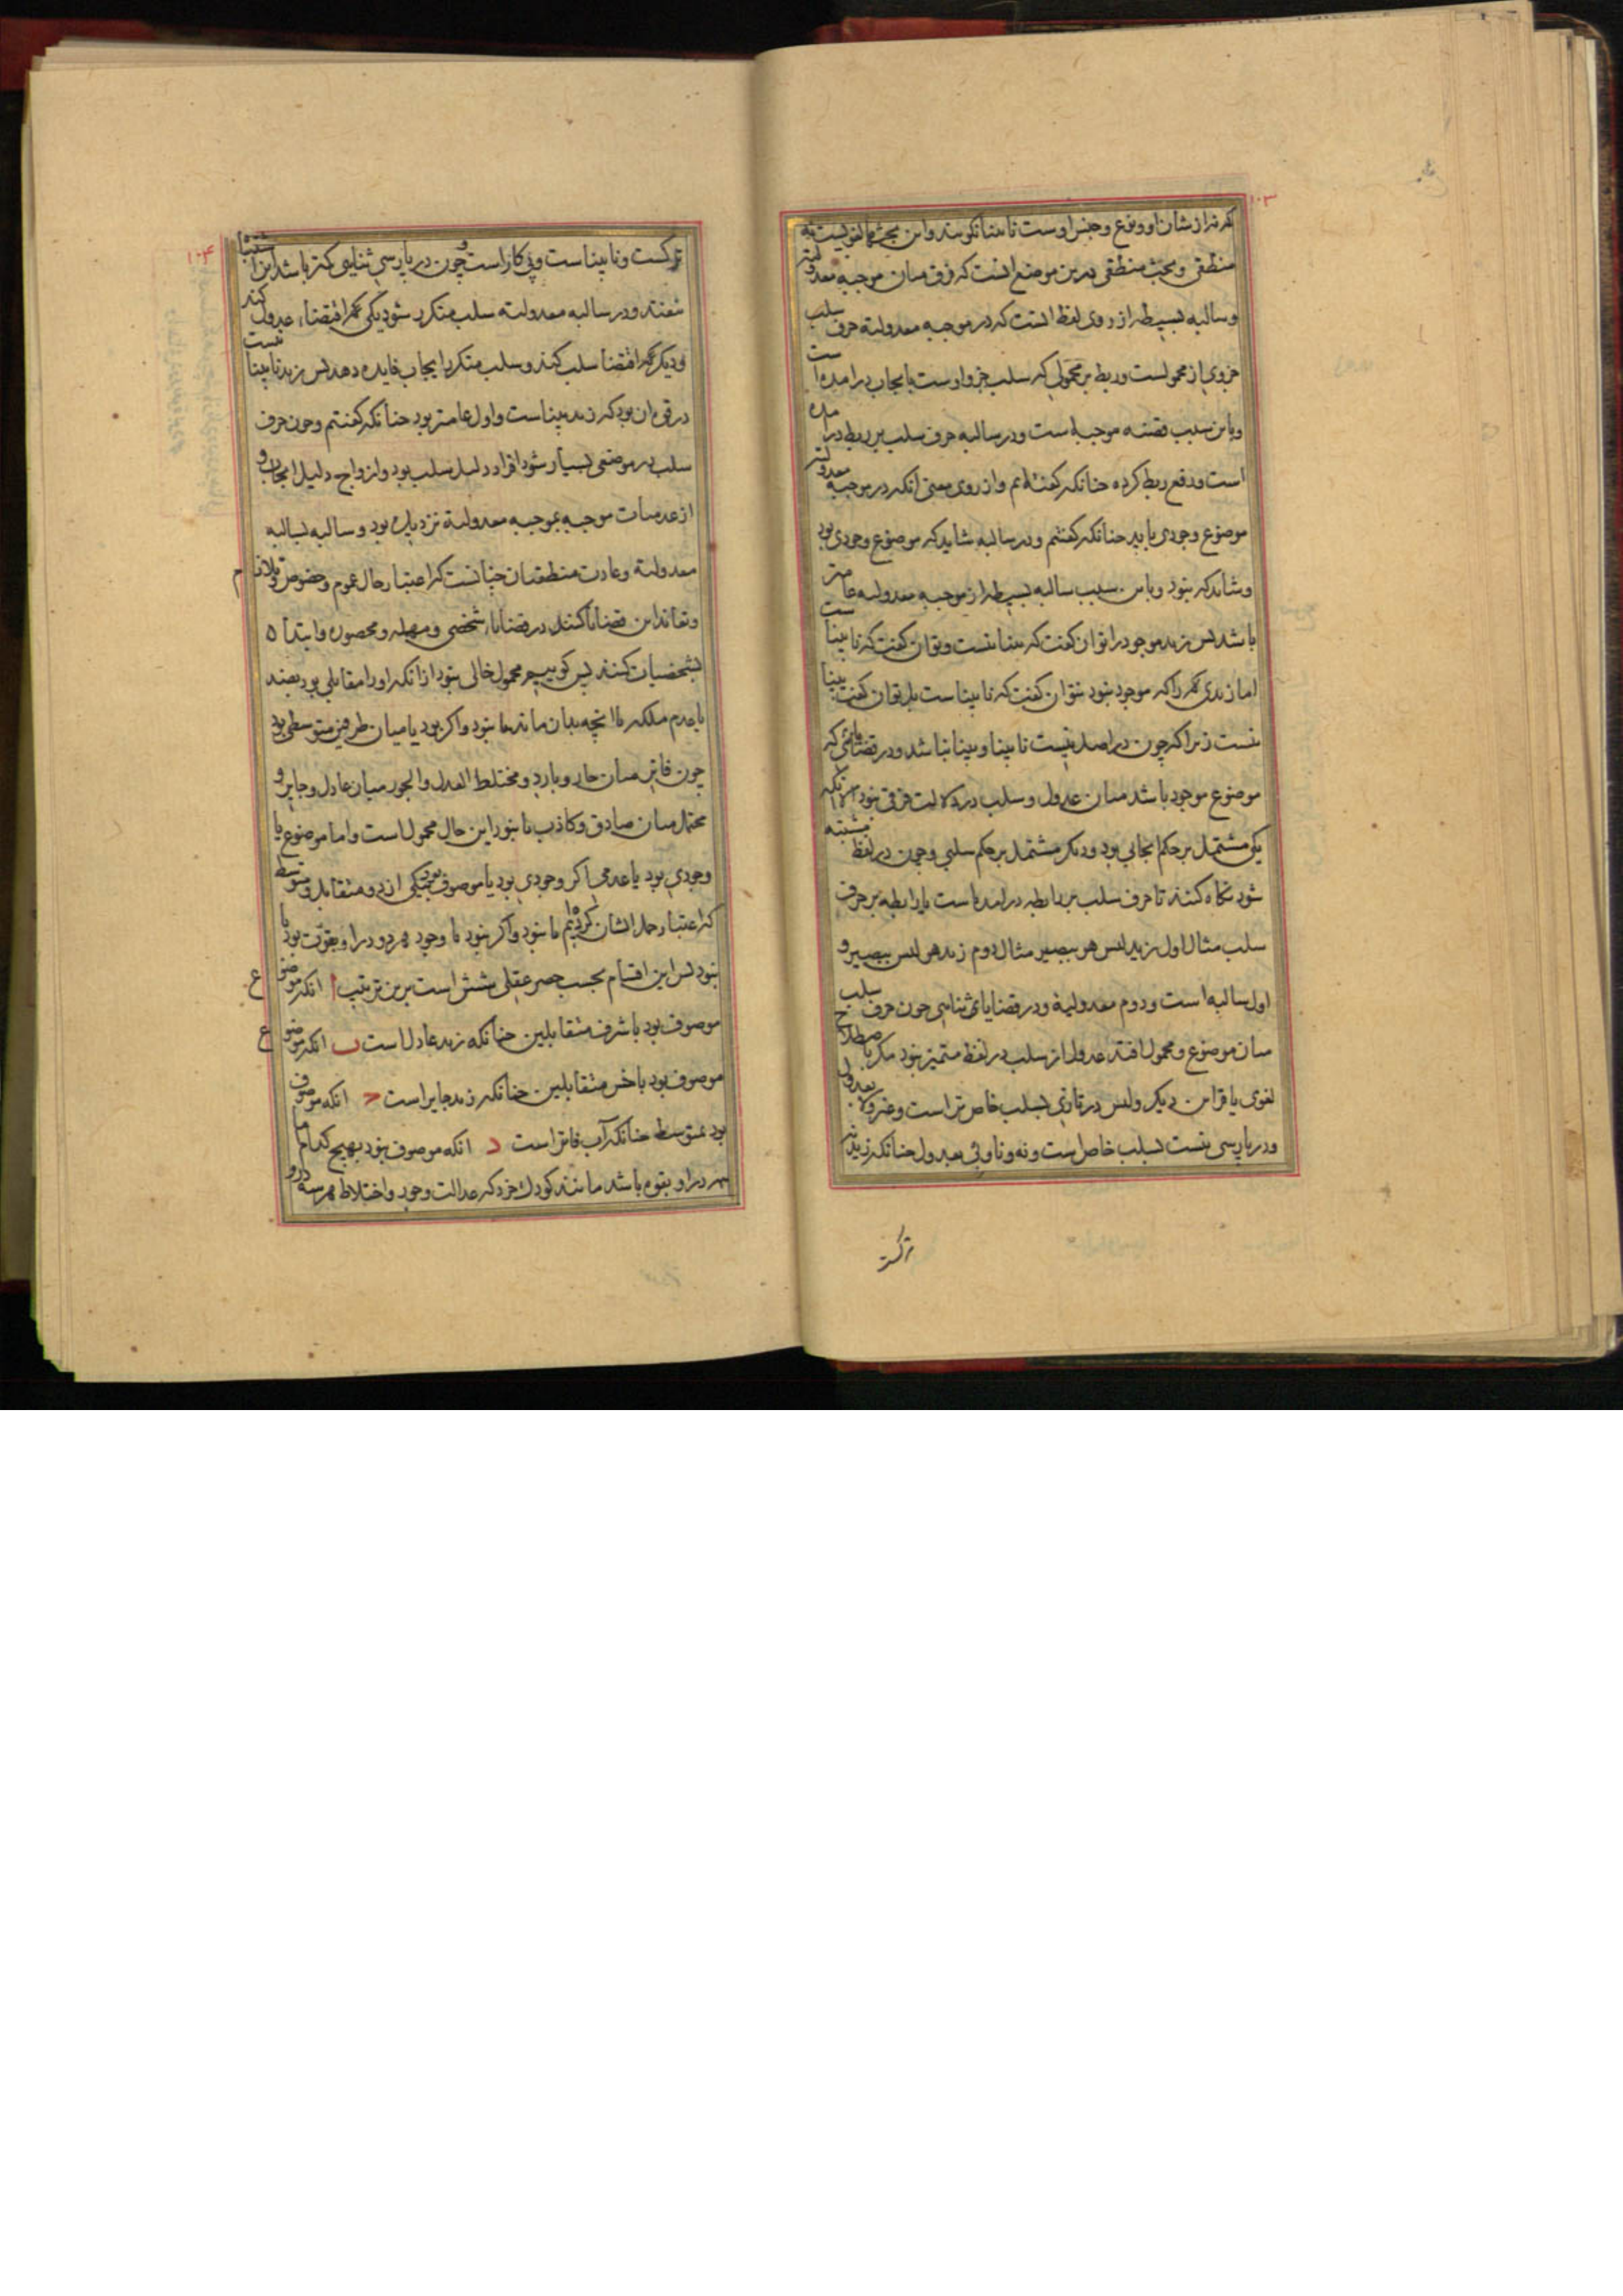 ۱۰۳
که نه از شان او و نوع و جنس اوست نابینا نگویند و این بحثها لغویست نه
منطقی و بحث منطقی درین موضع انست که فرق میان موجبه معدولیه
و سالبه بسیطه از روی لفظ انست که در موجبه معدولیه حرف سلب
جزوی از محمولست و ربط بر محمولی که سلب جزو اوست بایجاب درامده است
و باین سبب قضیه موجبه است و در سالبه حرف سلب بر ربط درامده
است و رفع ربط کرده چنانکه گفته‌ایم و از روی معنی آنکه در موجبه معدولیه
موضوع وجودی باید چنانکه گفتیم و در سالبه شاید که موضوع وجودی بود
و شاید که نبود و باین سبب سالبه بسیطه از موجبه معدولیه عامتر
باشد پس زید موجود را توان گفت که بینا نیست و توان گفت که نابیناست
اما زیدی را که موجود نبود نتوان گفت که نابیناست بل توان گفت بینا
نیست زیرا که چون در اصل نیست نابینا و بینا نباشد و در قضایائی که
موضوع موجود باشد میان عدول و سلب در دلالت فرق نبود الا آنکه
یکی مشتمل بر حکم ایجابی بود و دیگر مشتمل بر حکم سلبی و چون در لفظ مشتبه
شود نگاه کنند تا حرف سلب بر رابطه درامده است یا رابطه بر حرف
سلب مثال اول زید لیس هو ببصیر مثال دوم زید هو لیس ببصیر و
اول سالبه است و دوم معدولیه و در قضایای ثنایی چون حرف سلب
میان موضوع و محمول افتد عدول از سلب در لفظ متمیز نبود مگر باصطلاح
لغوی یا قراین دیگر و لیس در تازی بسلب خاص‌تر است و غیر و لا بعدول
و در پارسی نیست بسلب خاص است و نه و نا و بی بعدول چنانکه زید نه
ترکست
۱۰۴
ترکست و نابیناست و بی کار است و چون در پارسی ثنایی کمتر باشد این اشتباه
نیفتد و در سالبه معدولیه سلب متکرر شود یکی که اقتضاء عدول کند
و دیگر که اقتضا سلب کند و سلب متکرر ایجاب فایده دهد پس زید نابینا نیست
در قوه ان بود که زید بیناست و اول عامتر بود چنانکه گفتیم و چون حرف
سلب در موضعی بسیار شود افراد دلیل سلب بود و ازواج دلیل ایجاب و
از عدمیات موجبه بموجبه معدولیه نزدیک بود و سالبه بسالبه
معدولیه و عادت منطقیان چنانست که اعتبار حال عموم و خصوص و تلازم
و تعاند این قضایا کنند در قضایاء شخصی و مهمله و محصوره و ابتدا
بشخصیات کنند پس گوییم محمول خالی نبود از آنکه او را مقابلی بود بضد
یا عدم ملکه یا انچه بدان ماند یا نبود و اگر بود یا میان طرفین متوسطی بود
چون فاتر میان حار و بارد و مختلط العدل و الجور میان عادل و جایر و
محتمل میان صادق و کاذب یا نبود این حال محمول است و اما موضوع یا
وجودی بود یا عدمی اگر وجودی بود یا موصوف بود بیکی از دو متقابل و متوسط
که اعتبار حمل ایشان کرده‌ایم یا نبود و اگر نبود با وجود هر دو در او بقوت بود یا
نبود پس این اقسام بحسب حصر عقلی شش است برین ترتیب ا آنکه موضوع
موصوف بود باشرف متقابلین چنانکه زید عادل است ب آنکه موضوع
موصوف بود باخس متقابلین چنانکه زید جایر است ج آنکه موصوف
بود بمتوسط چنانکه آب فاتر است د آنکه موصوف نبود بهیچ کدام اما
هر در او بقوه باشد مانند کودک خرد که عدالت و جور و اختلاط هر سه در او